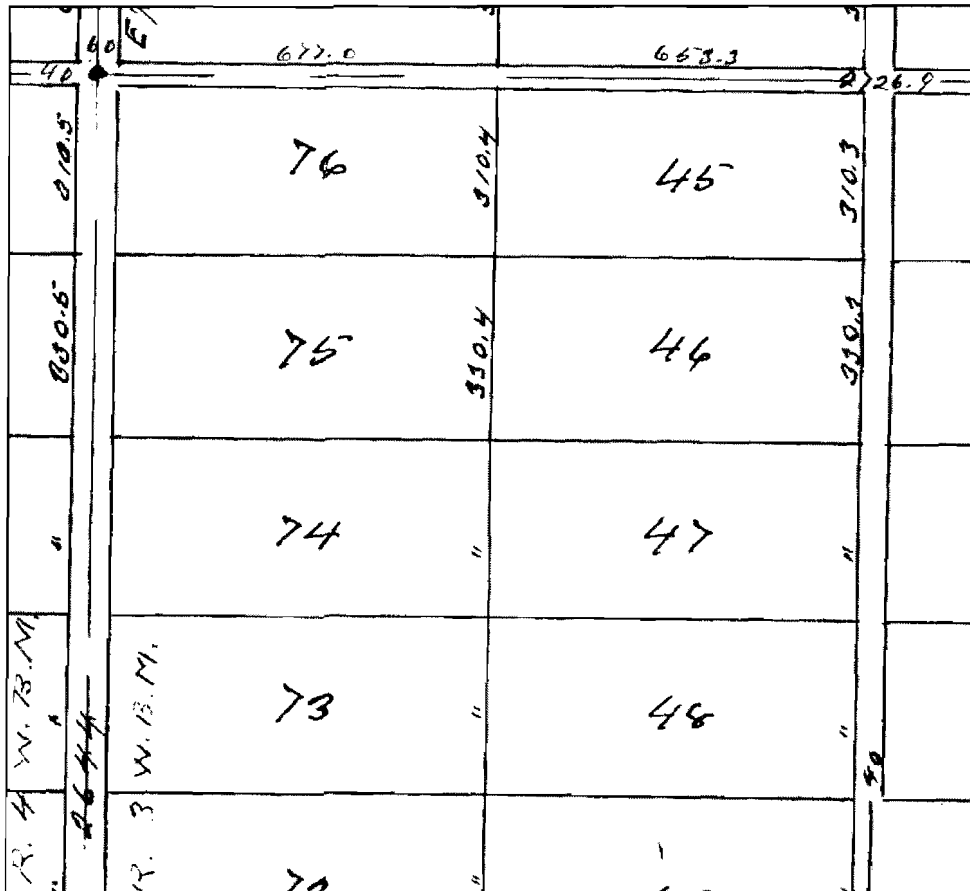 60
677.0
653.3
40
2726.9
310.5
76
310.4
45
310.3
330.5
75
330.4
46
330.3
"
74
"
47
"
R. 4 W. B. M.
"
2644
R. 3 W. B. M.
73
"
48
"
40
"
"
"